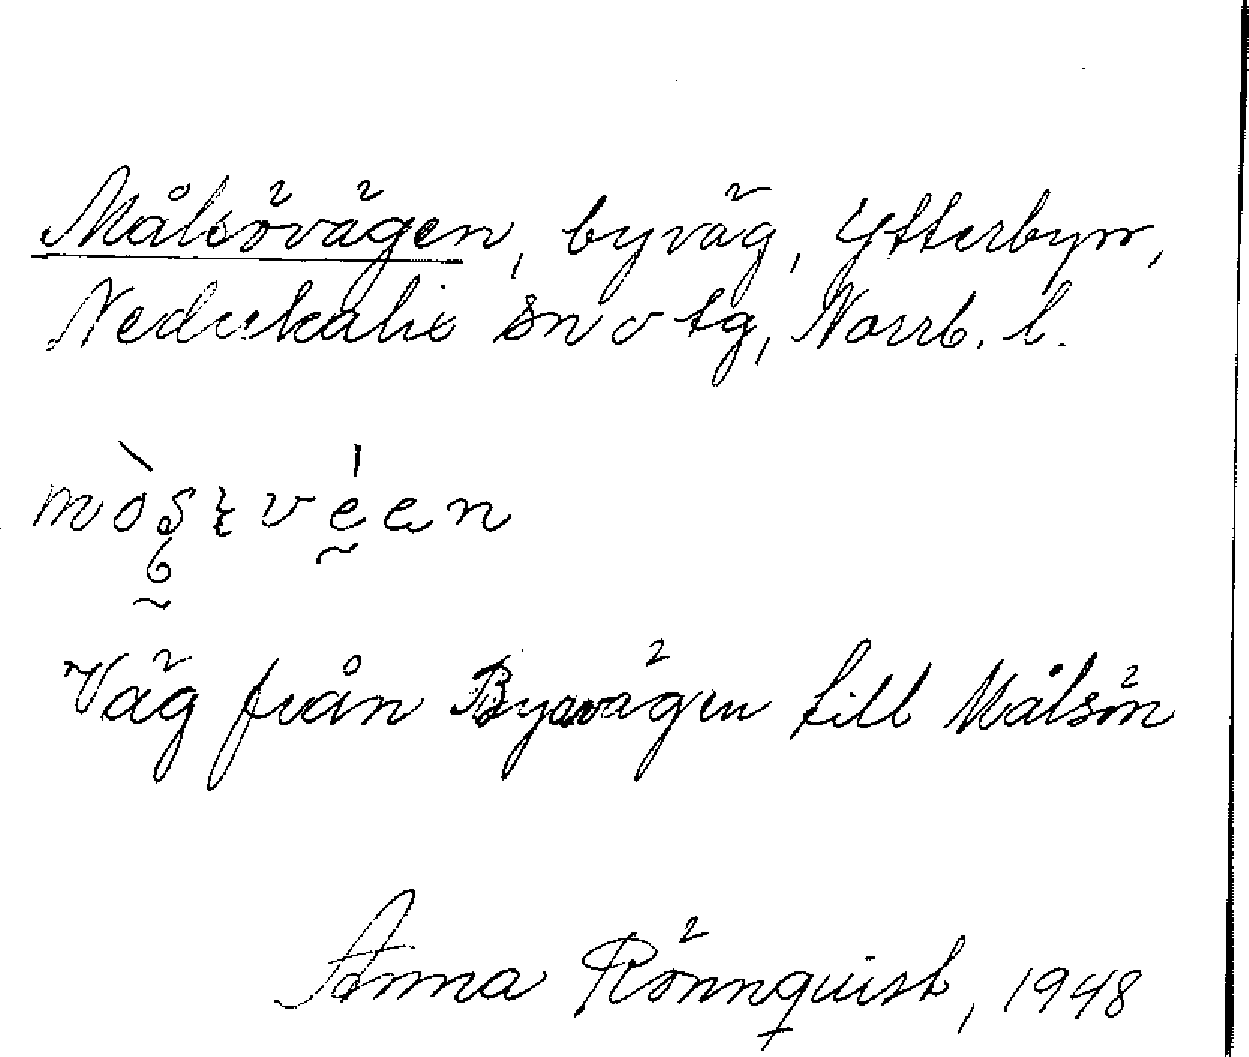 Målsövägen, byväg, Ytterbyn,
Nederkalix sn o tg, Norrb. l.
Väg från Byavägen till Målsön
Anna Rönnquist, 1948